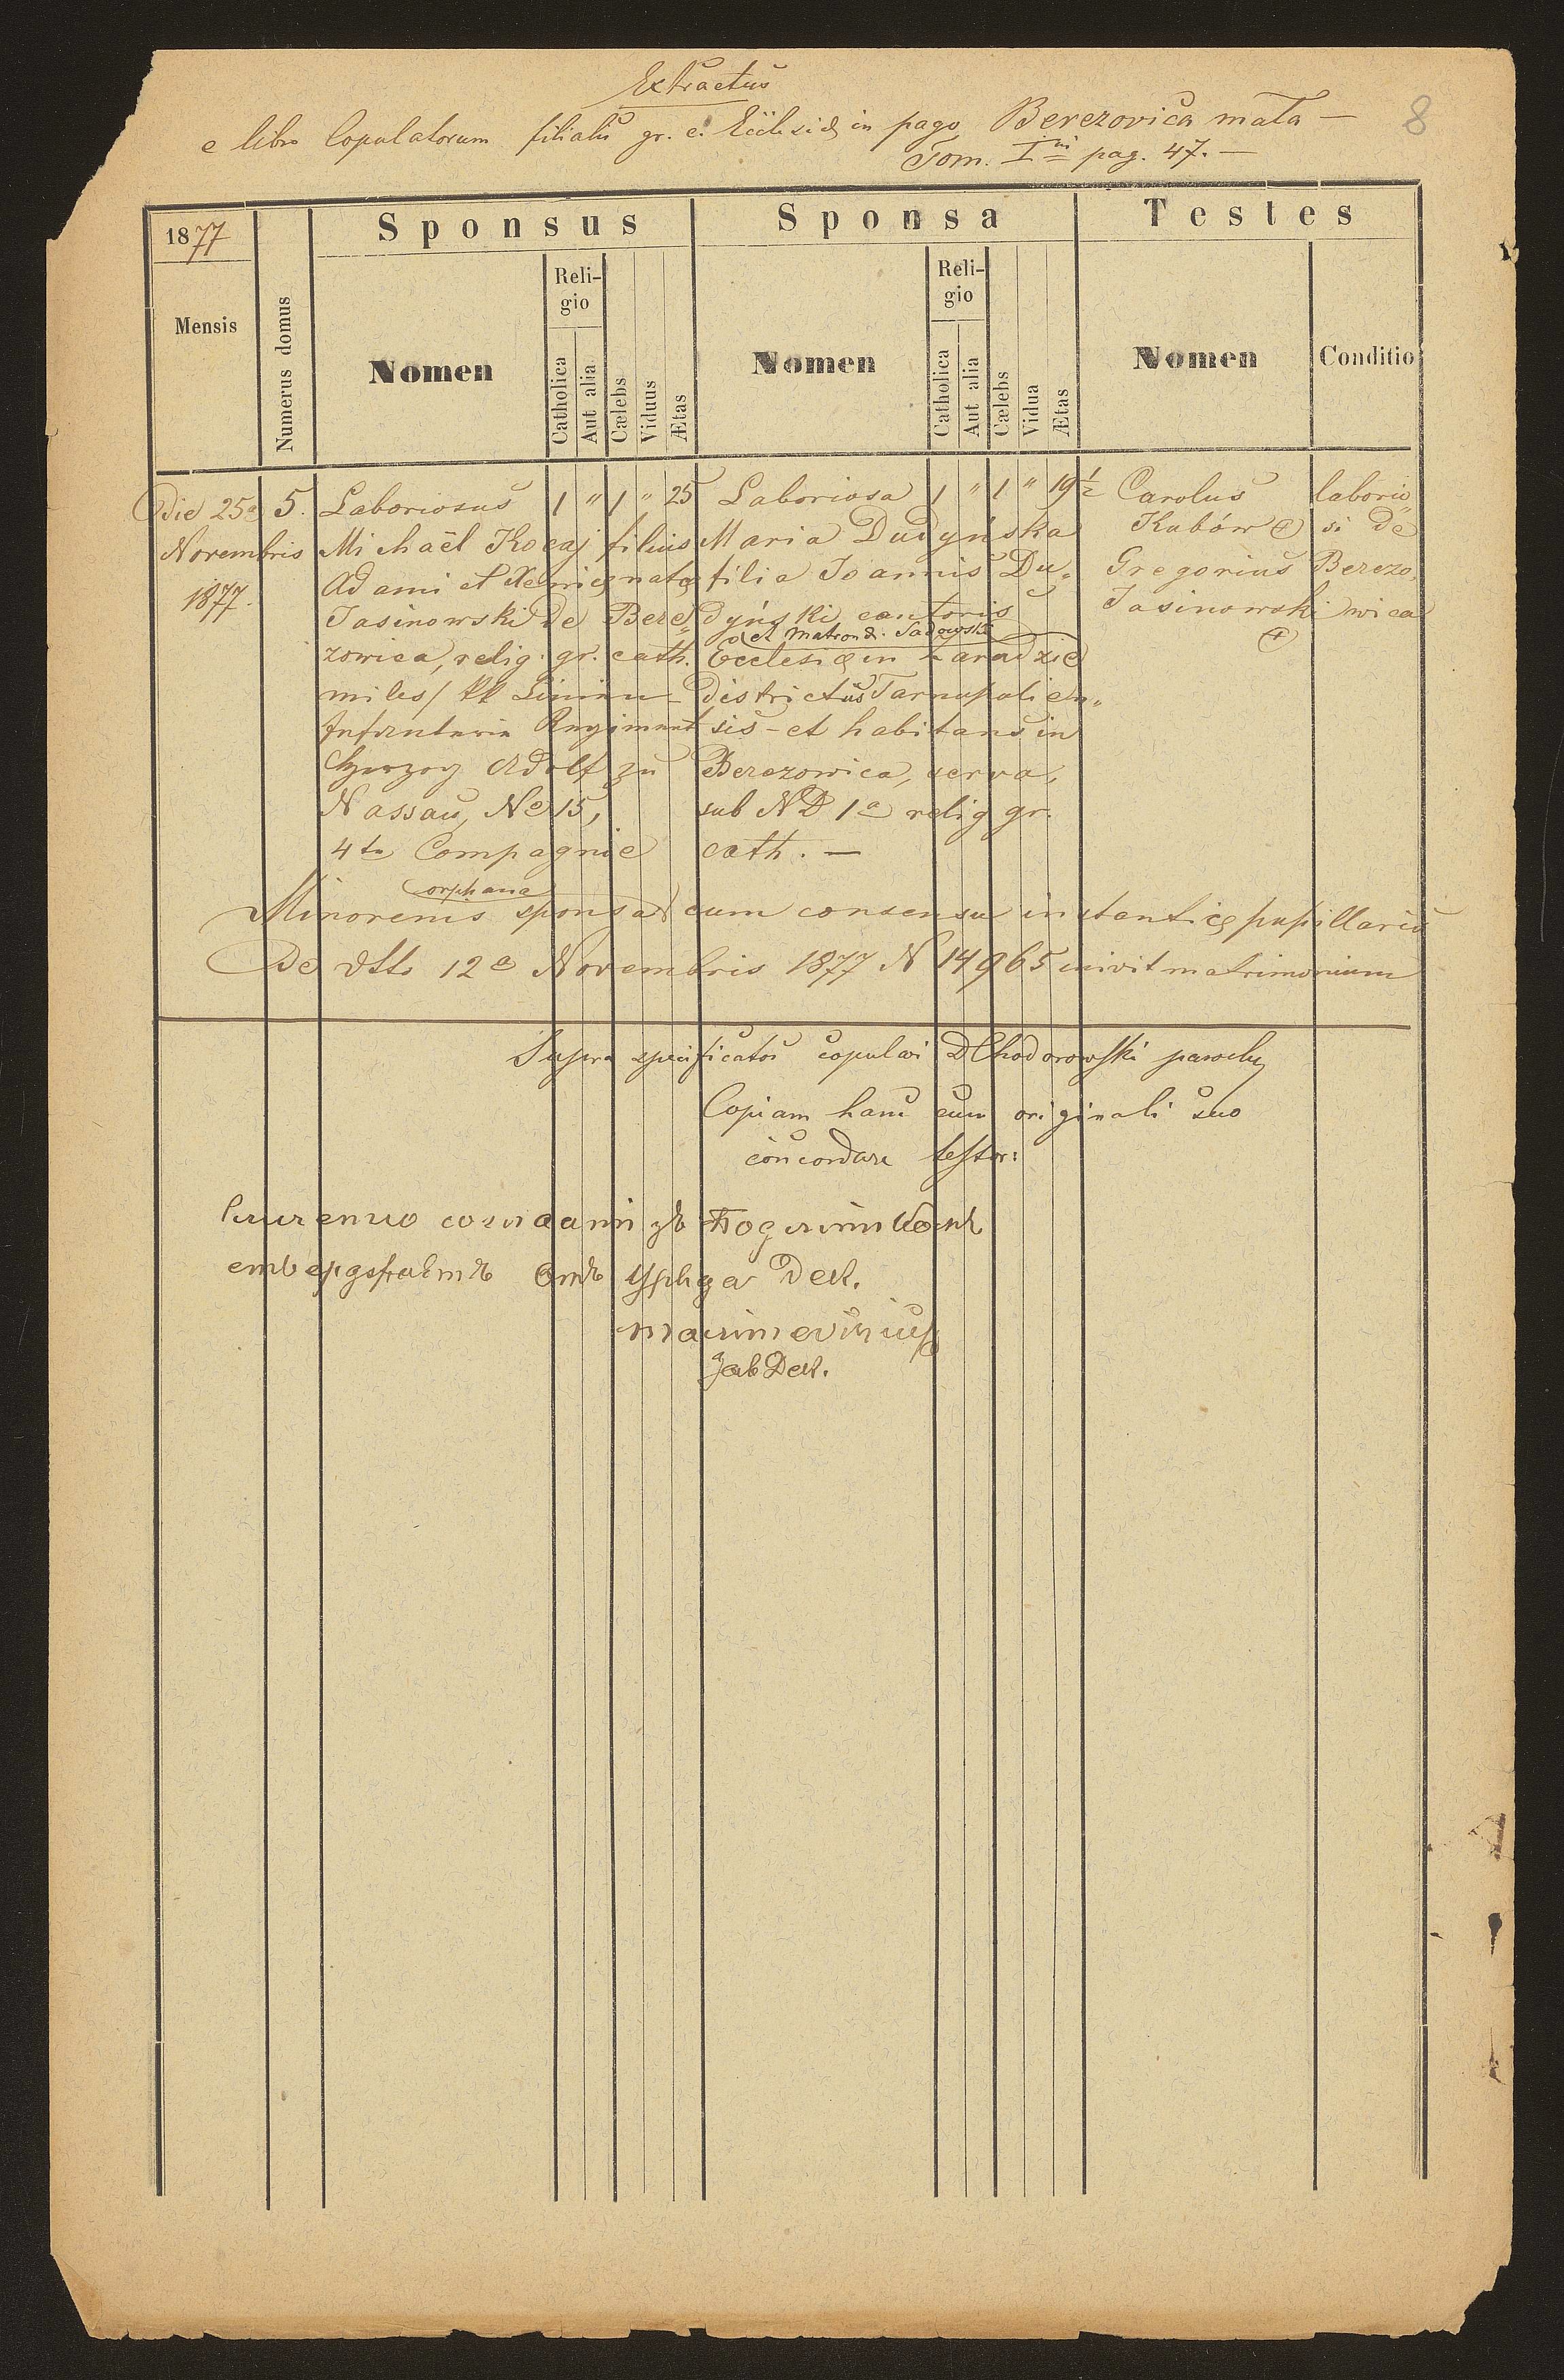 Extractus
e libro Copulatorum filialis gr. c. Ecclesiæ in pago Berezovica mała —
Tom. I pag. 47. —
8
Sponsus Sponsa Testes
1877
Mensis
Numerus domus
Nomen
Reli-
gio
Catholica
Aut alia
Cælebs
Viduus
Ætas
Nomen
Reli-
gio
Catholica
Aut alia
Cælebs
Vidua
Ætas
Nomen
Conditio
Die 25a
Novembris
1877.
5.
Laboriosus
Michaël Kocaj filius
Adami et Xeniæ natæ
Jasinowski de Bere„
zowica, relig. gr. cath.
miles / kk Linien
Infanterie Regiment
Herzog Adolf zu
Nassau, No 15,
4te Compagnie
1 " 1 " 25
Laboriosa
Maria Dudyńska
filia Joannis Du„
dyński cantoris
et Matronæ Sadowska
Ecclesiæ in
districtus Tarnopolien„
sis - et habitans in
Berezowica, serva,
sub ND 1a relig gr.
cath. —
1 " 1 " 19 1/2
Carolus
Kubów +
Gregorius
Jasinowski
+
laborio
si de
Berezo
wica
orphana
Minorenis sponsa cum consensu instantiæ pupillaris
De dtto 12a Novembris 1877 N 14965 inivit matrimonium
Supra specificatos copulavi DChodorowski parochus
Copiam hanc cum originali suo
concordare testor: